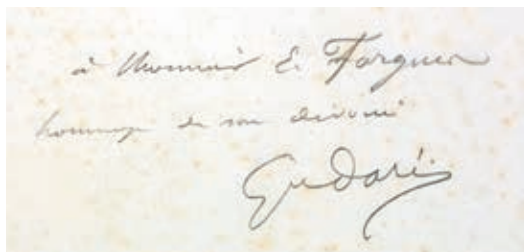 à Monsieur E. Forgues
hommage de son dévoué
Gve Doré